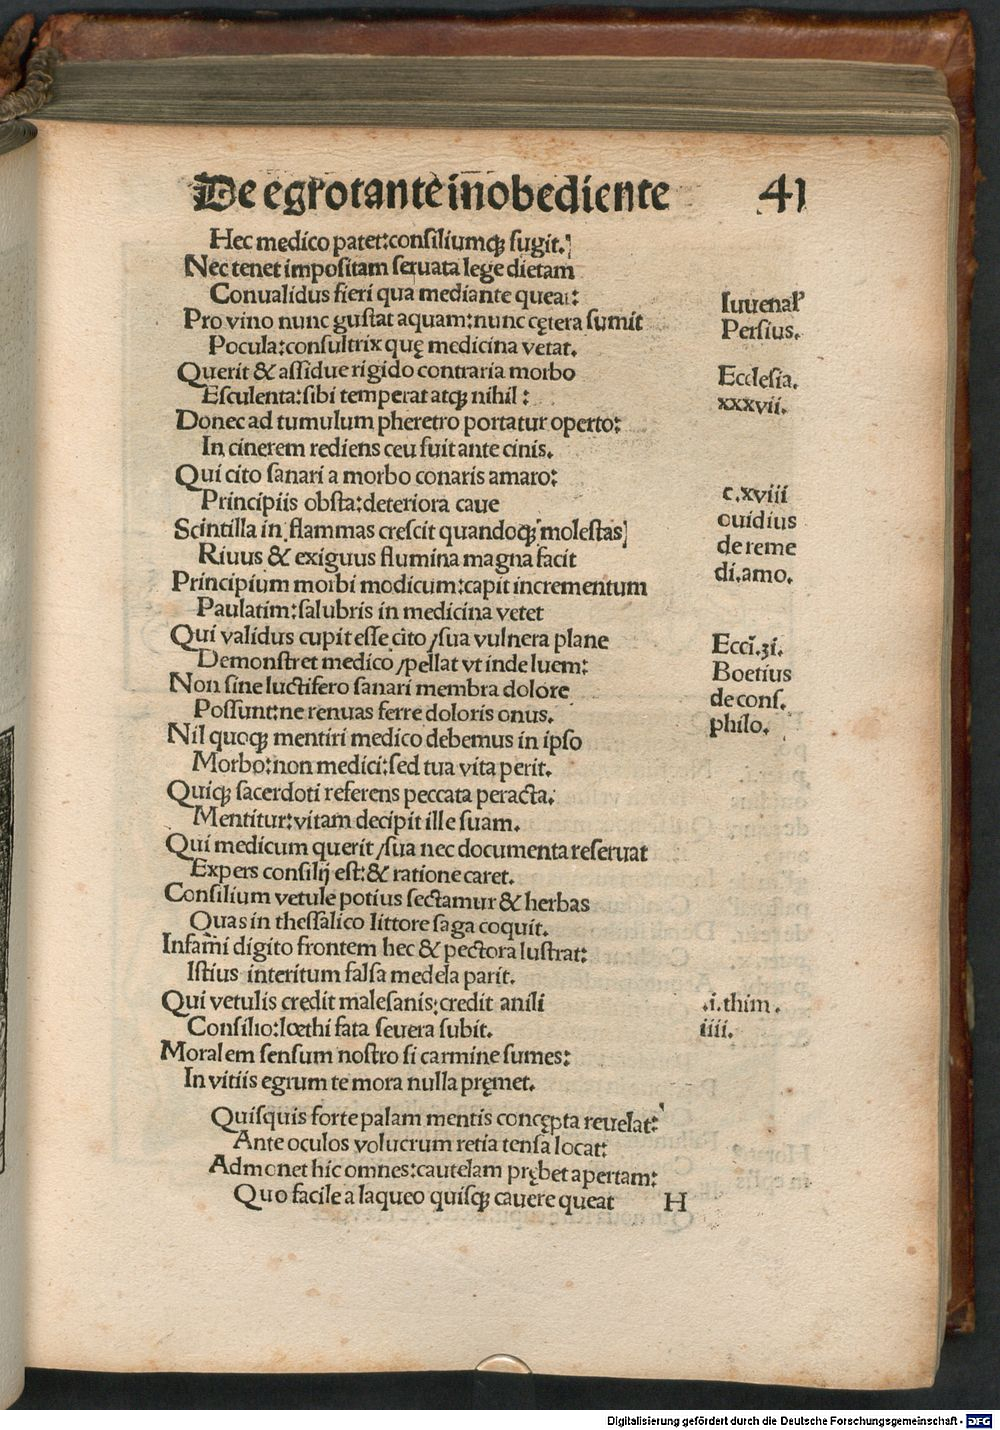 De egrotante inobediente 41
Hec medico patet:consiliumqꝫ fugit.
Nec tenet impositam seruata lege dietam
Conualidus fieri qua mediante queat:
Pro vino nunc gustat aquam:nunc cętera sumit
Iuuenal'
Pocula:consultrix quę medicina vetat.
Persius.
Querit & assidue rigido contraria morbo
Ecclesia.
Esculenta:sibi temperat atqꝫ nihil:
xxxvii.
Donec ad tumulum pheretro portatur operto:
In cinerem rediens ceu fuit ante cinis.
Qui cito sanari a morbo conaris amaro:
Principiis obsta:deteriora caue
c.xviii
Scintilla in flammas crescit quandoqꝫ molestas
ouidius
Riuus & exiguus flumina magna facit
de reme
Principium morbi modicum:capit incrementum
di.amo.
Paulatim:salubris in medicina vetet
Qui validus cupit esse cito/sua vulnera plane
Ecci.3i.
Demonstret medico/pellat vt inde luem:
Boetius
Non sine luctifero sanari membra dolore
de cons.
Possunt:ne renuas ferre doloris onus.
philo.
Nil quoqꝫ mentiri medico debemus in ipso
Morbo:non medici:sed tua vita perit.
Quiqꝫ sacerdoti referens peccata peracta.
Mentitur:vitam decipit ille suam.
Qui medicum querit/sua nec documenta reseruat
Expers consilij est:& ratione caret.
Consilium vetule potius sectamur & herbas
Quas in thessalico littore saga coquit.
Infami digito frontem hec & pectora lustrat:
Istius interitum falsa medela parit.
Qui vetulis credit malesanis:credit anili
.i.thim.
Consilio:lœthi fata seuera subit.
iiii.
Moralem sensum nostro si carmine sumes:
In vitiis egrum te mora nulla pręmet.
Quisquis forte palam mentis concępta reuelat:
Ante oculos volucrum retia tensa locat:
Admonet hic omnes:cautelam prębet apertam:
Quo facile a laqueo quisqꝫ cauere queat H
Digitalisierung gefördert durch die Deutsche Forschungsgemeinschaft - DFG